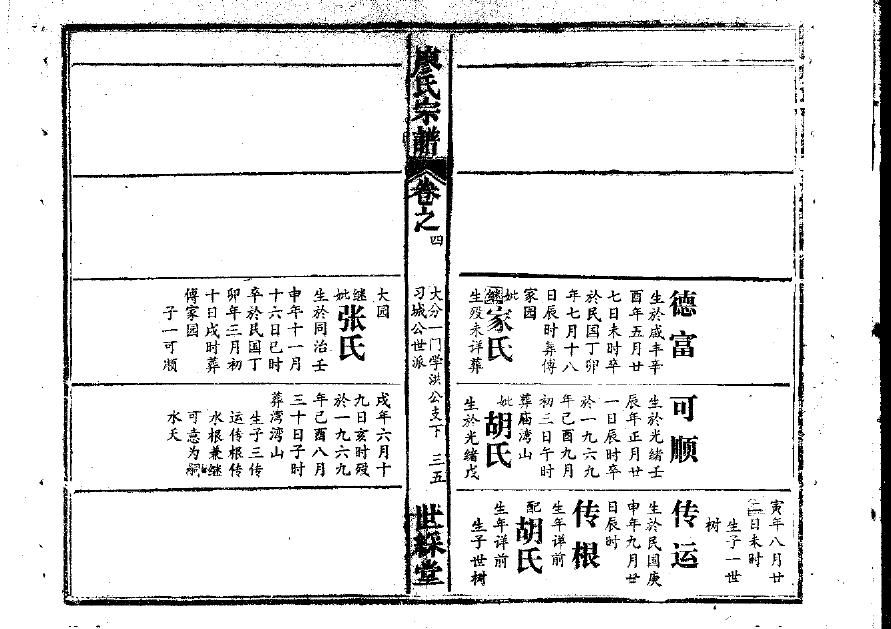 德富
生於咸丰辛
酉年五月廿
七日未时卒
於民国丁卯
年七月十八
日辰时葬傅
家园
妣
继
家氏
生殁未详葬
可顺
生於光绪壬
辰年正月廿
一日辰时卒
於一九六九
年己酉九月
初三日午时
葬庙湾山
妣
胡氏
生於光绪戊
寅年八月廿
二日未时
生子一世
树
传运
生於民国庚
申年九月廿
日辰时
传根
生年详前
配
胡氏
生年详前
生子世树
廖氏宗譜
卷之四
大分一门学洪公支下 三五
习城公世派
世綵堂
大园
继妣
张氏
生於同治壬
申年十一月
十六日巳时
卒於民国丁
卯年三月初
十日戌时葬
傅家园
子一可顺
戌年六月十
九日亥时殁
於一九六九
年己酉八月
三十日子时
葬湾湾山
生子三传
运传根传
水根兼继
可意为嗣
水夭